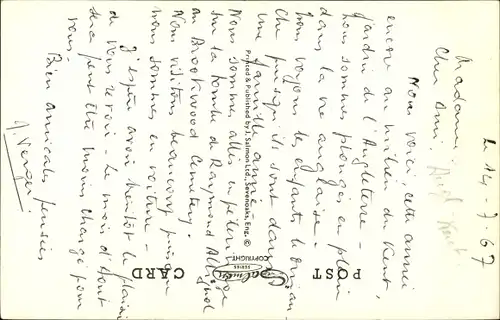 Le 14-7-67
Madame,
Cher Ami
Nous voici, cette année
encore au milieu du Kent,
jardin de l'Angleterre -
nous sommes plongés en plein
dans la vie anglaise.
nous voyons les enfants
puisqu'ils sont dans
une famille amie -
Nous sommes allés en pèlerinage
sur la tombe de Raymond
au Brookwood Cemetery.
Nous visitons beaucoup puisque
nous sommes en voiture -
J'espère avoir bientôt le plaisir
de vous revoir - Le mois d'août
sera peut être moins chargé pour
vous.
Bien amicales pensées
POST CARD
Salmon SERIES
COPYRIGHT
Printed & Published by J. Salmon Ltd., Sevenoaks, Eng. ©